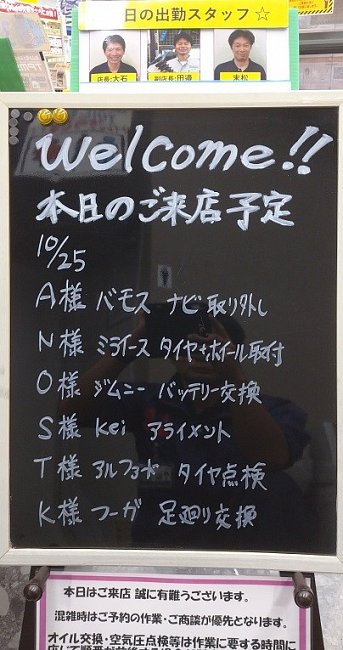 日の出勤スタッフ☆
店長:大石 副店長・田邉 末松
Welcome!!
本日のご来店予定
10/25
A様 バモス ナビ取り外し
N様 ミライース タイヤ+ホイール取付
O様 ジムニー バッテリー交換
S様 Kei アライメント
T様 アルファード タイヤ点検
K様 フーガ 足廻り交換
本日はご来店 誠に有難うございます。
混雑時はご予約の作業・ご商談が優先となります。
オイル交換・空気圧点検等は作業に要する時間に